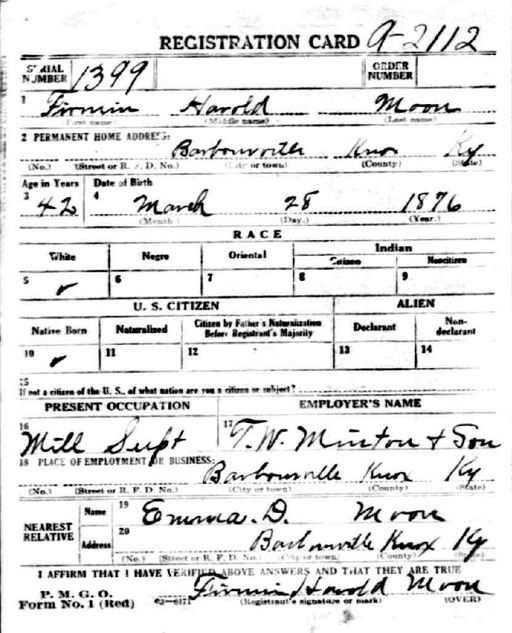 REGISTRATION CARD A-2112
SERIAL NUMBER 1399 ORDER NUMBER
1 Firmin Harold Moon
(First name) (Middle name) (Last name)
2 PERMANENT HOME ADDRESS:
Barbourville Knox Ky
(No.) (Street or R. F. D. No.) (City or town) (County) (State)
Age in Years Date of Birth
3 42 4 March 28 1876
(Month.) (Day.) (Year.)
RACE
White Negro Oriental Indian
Citizen Noncitizen
5 ✓ 6 7 8 9
U. S. CITIZEN ALIEN
Native Born Naturalized Citizen by Father's Naturalization Before Registrant's Majority Declarant Non-declarant
10 ✓ 11 12 13 14
15
If not a citizen of the U. S., of what nation are you a citizen or subject?
PRESENT OCCUPATION EMPLOYER'S NAME
16 Mill Supt 17 T. W. Minton & Son
18 PLACE OF EMPLOYMENT OR BUSINESS:
Barbourville Knox Ky
(No.) (Street or R. F. D. No.) (City or town) (County) (State)
NEAREST RELATIVE Name 19 Emma. D. Moon
Address 20 Barbourville Knox Ky
(No.) (Street or R. F. D. No.) (City or town) (County) (State)
I AFFIRM THAT I HAVE VERIFIED ABOVE ANSWERS AND THAT THEY ARE TRUE
P. M. G. O.
Form No. 1 (Red) Firmin Harold Moon
(Registrant's signature or mark) (OVER)